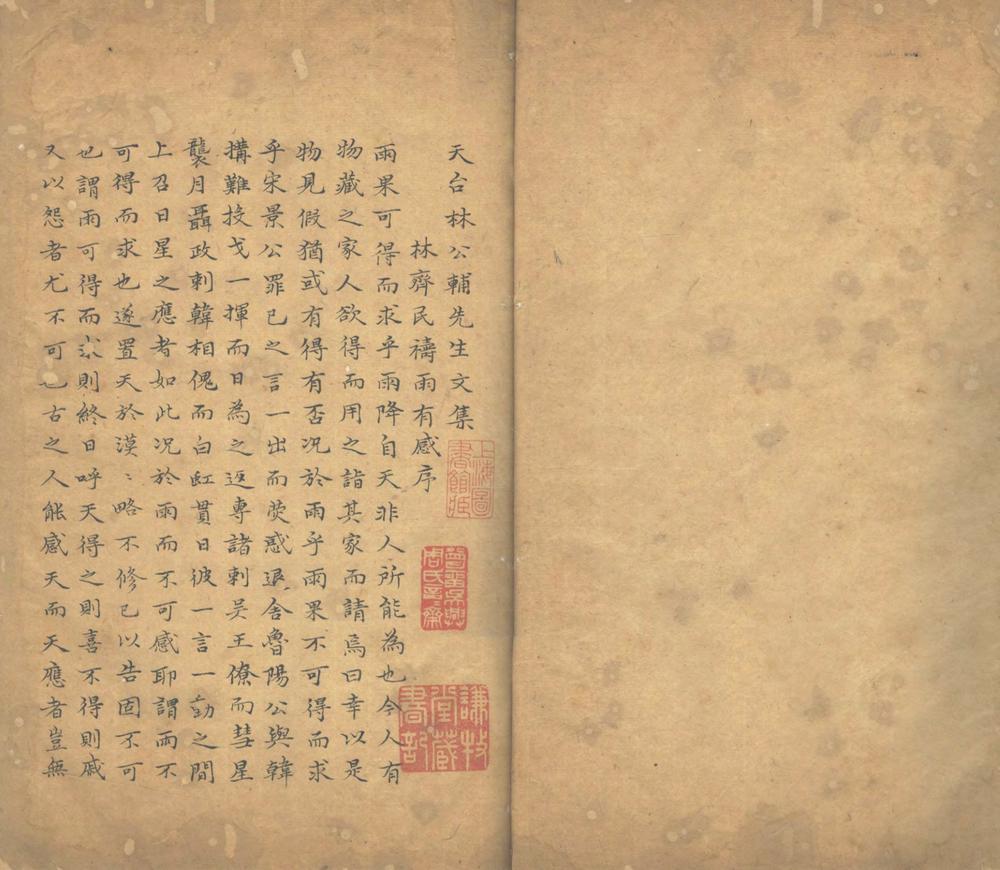 天台林公輔先生文集
林齊民禱雨有感序
雨果可得而求乎雨降自天非人所能為也今人有
物藏之家人欲得而用之詣其家而請焉曰幸以是
物見假猶或有得有否況於雨乎雨果不可得而求
乎宋景公罪已之言一出而熒惑退舍魯陽公與韓
搆難投戈一揮而日為之返專諸刺吴王僚而彗星
襲月聶政刺韓相傀而白虹貫日彼一言一動之間
上召日星之應者如此况於雨而不可感耶謂雨不
可得而求也遂置天於漠〻略不修已以告固不可
也謂雨可得而求則終日呼天得之則喜不得則戚
又以怨者尤不可也古之人能感天而天應者豈無
上海圖書館藏
曾留吳興周氏言言齋
謙牧堂藏書部